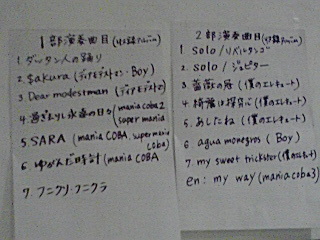 1部演奏曲目(収録アルバム)
1. ダッタン人の踊り
2. Sakura (ディアモデストマン・Boy)
3. Dear modestman (ディアモデスト)
4. 過ぎ去りし永遠の日々 (mania coba2
super mania
5. SARA (mania COBA, super mania
coba)
6. ゆがんだ時計 (mania COBA
7. フニクリ・フニクラ
2部演奏曲目(収録アルバム)
1 Solo/リベルタンゴ
2 solo/ジュピター
3 薔薇の冠 (僕のエレキュート)
4 綺麗は探究心 (僕のエレキュート)
5. あしたね (僕のエレキュート)
6 agua monegros (Boy)
7. my sweet trickster (僕のエレキュート)
en: my way (mania coba3)